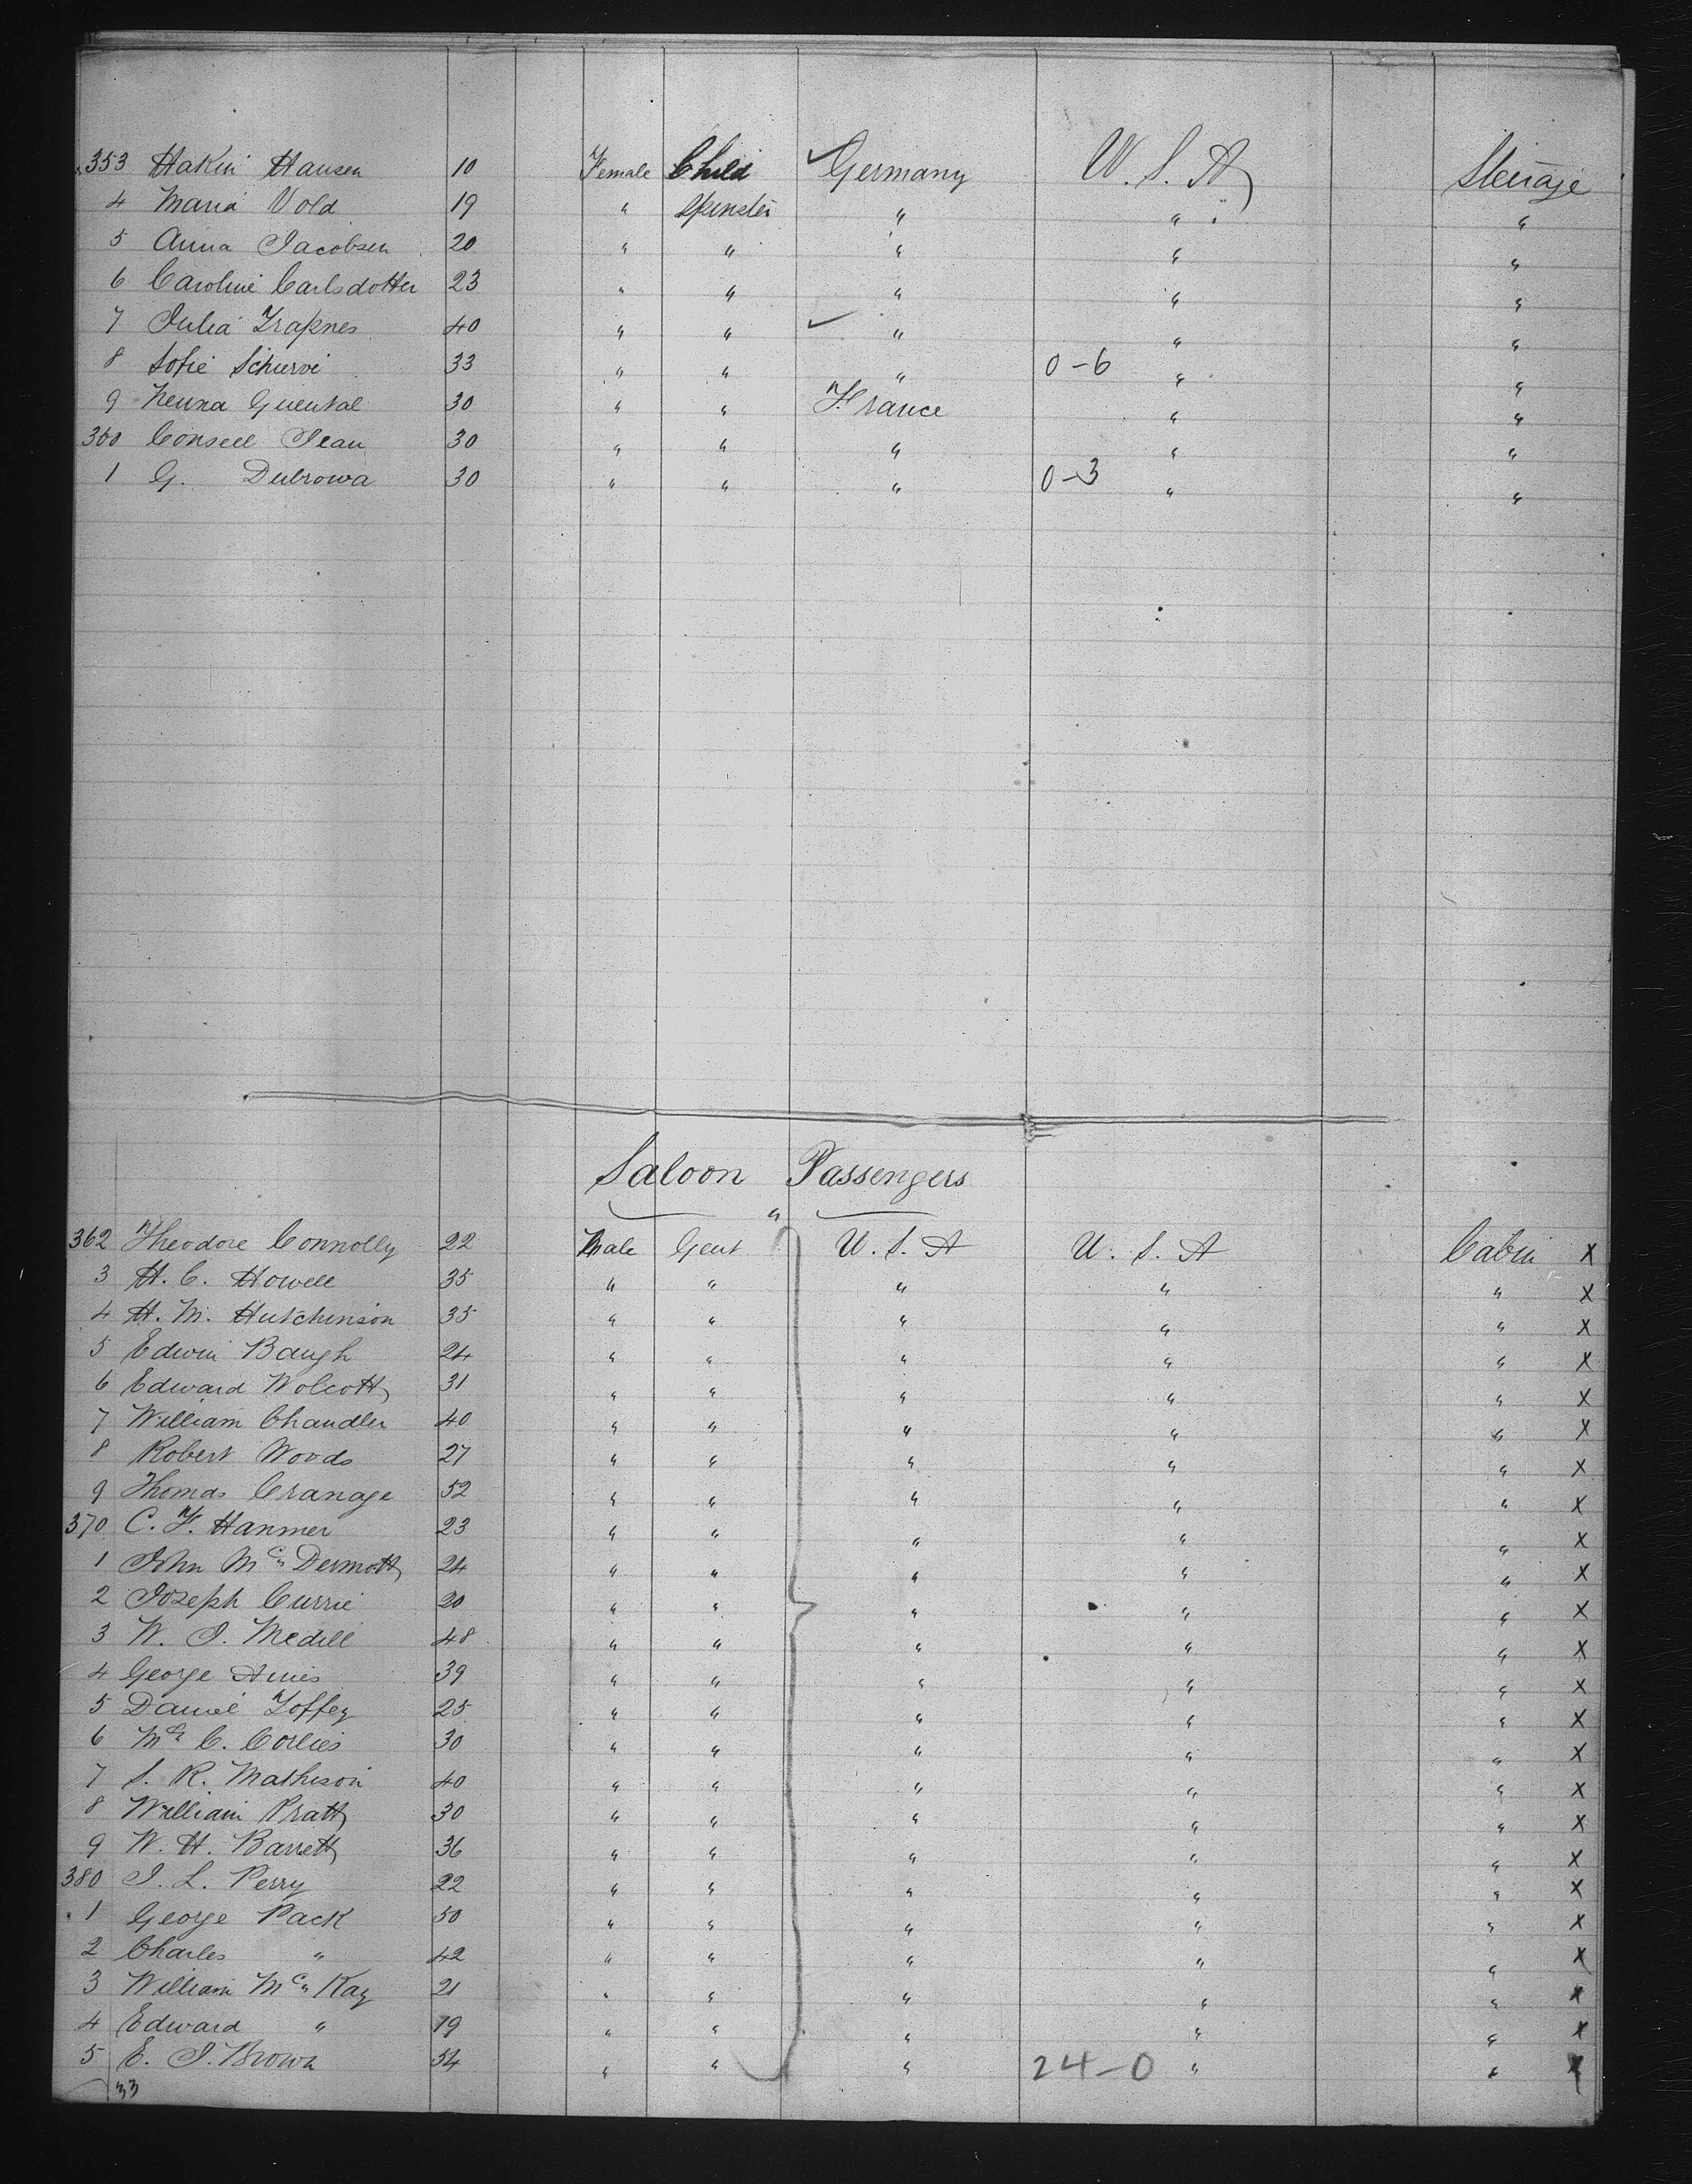 353 Hakin Hansen 10 Female Child Germany U.S.A Steerage
4 Maria Vold 19 " Spinster " " "
5 Anna Jacobsen 20 " " " " "
6 Caroline Carlsdotter 23 " " " " "
7 Julia Trapnes 40 " " " " "
8 Sofie Schurvi 33 " " " 0-6 " "
9 Guental 30 " " France " "
360 Jean 30 " " " " "
1 G. Dubrowa 30 " " " 0-3 " "
Saloon Passengers
"
362 Theodore Connolly 22 Male Gent U.S.A U.S.A Cabin X
3 H. C. Howell 35 " " " " " X
4 H. M. Hutchinson 35 " " " " " X
5 Edwin Baugh 24 " " " " " X
6 Edward Wolcott 31 " " " " " X
7 William Chandler 40 " " " " " X
8 Robert Woods 27 " " " " " X
9 Thomas Cranage 52 " " " " " X
370 C. F. Hanmer 23 " " " " " X
1 John Mc Dermott 24 " " " " " X
2 Joseph Currie 20 " " " " " X
3 W. J. Medill 48 " " " " " X
4 George Amies 39 " " " " " X
5 Daniel Toffey 25 " " " " " X
6 C. Corlies 30 " " " " " X
7 S. R. Mathison 40 " " " " " X
8 William Pratt 30 " " " " " X
9 W. H. Barrett 36 " " " " " X
380 J. L. Perry 22 " " " " " X
1 George Pack 50 " " " " " X
2 Charles " 42 " " " " " X
3 William Mc Kay 21 " " " " " X
4 Edward " 19 " " " " " X
5 E. J. Brown 34 " " " 24-0 " " X
33